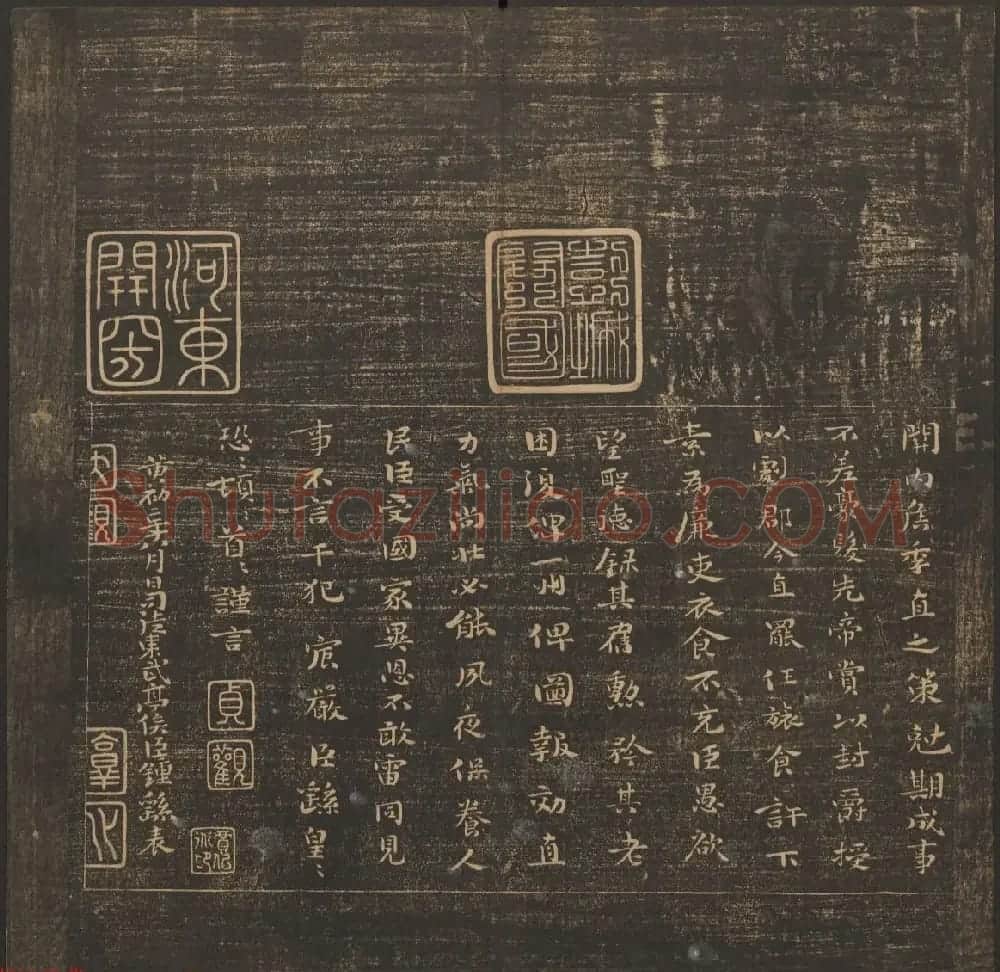 關内侯季直之策尅期成事
不差豪髮先帝賞以封爵授
以劇郡今直罷任旅食許下
素為廉吏衣食不充臣愚欲
望聖德錄其舊勳矜其老
困復俾一州俾圖報効直
力氣尚壯必能夙夜保養人
民臣受國家異恩不敢雷同見
事不言干犯宸嚴臣繇皇〻
恐〻頓〻首〻謹言
黃初二年八月日司徒東武亭侯臣鍾繇表
彭城開國
河東
貞觀
Shufaziliao.COM